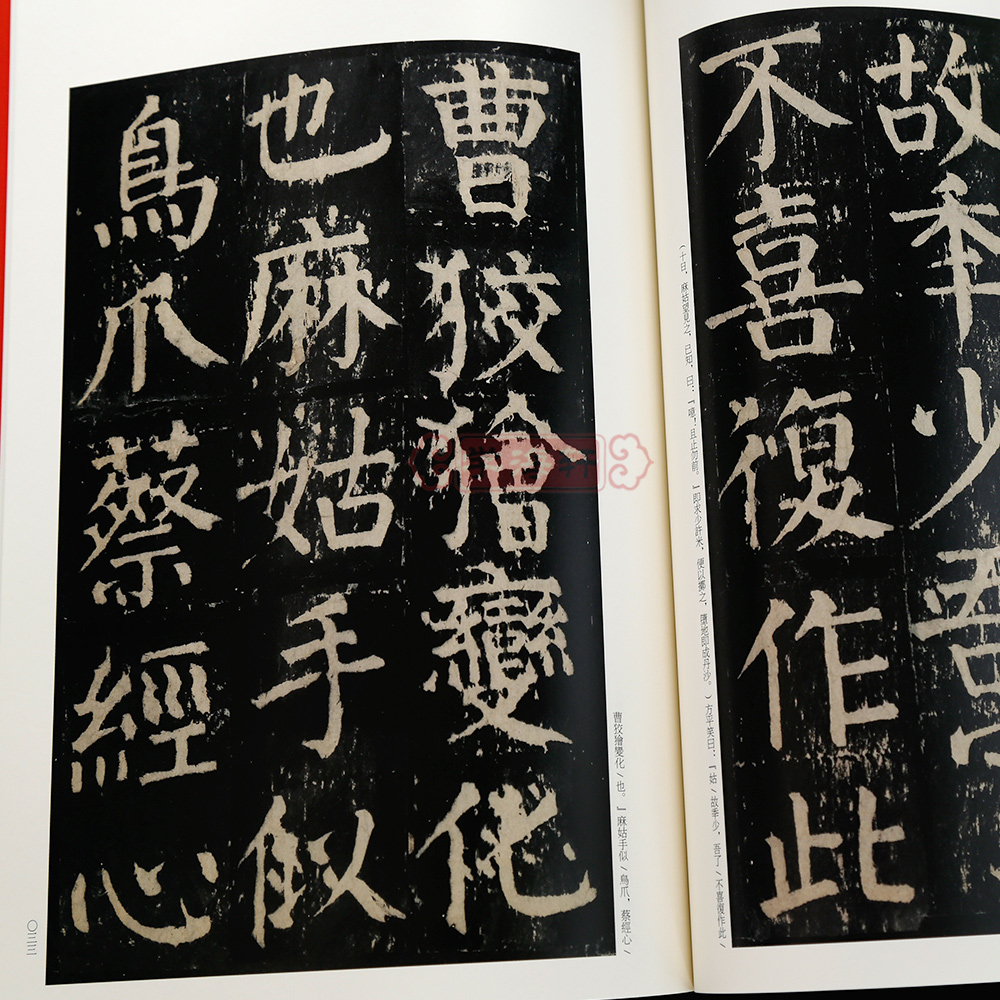 故秊少吾
不喜復作此
（十日，麻姑望見之，已知，曰：『噫！且止勿前。』即求少許米，便以擲之，墮地即成丹沙。）方平笑曰：『姑／故秊少，吾了／不喜復作此／
曹狡獪變化／也。』麻姑手似／鳥爪，蔡經心／
曹狡獪變化
也麻姑手似
鳥爪蔡經心
〇三三